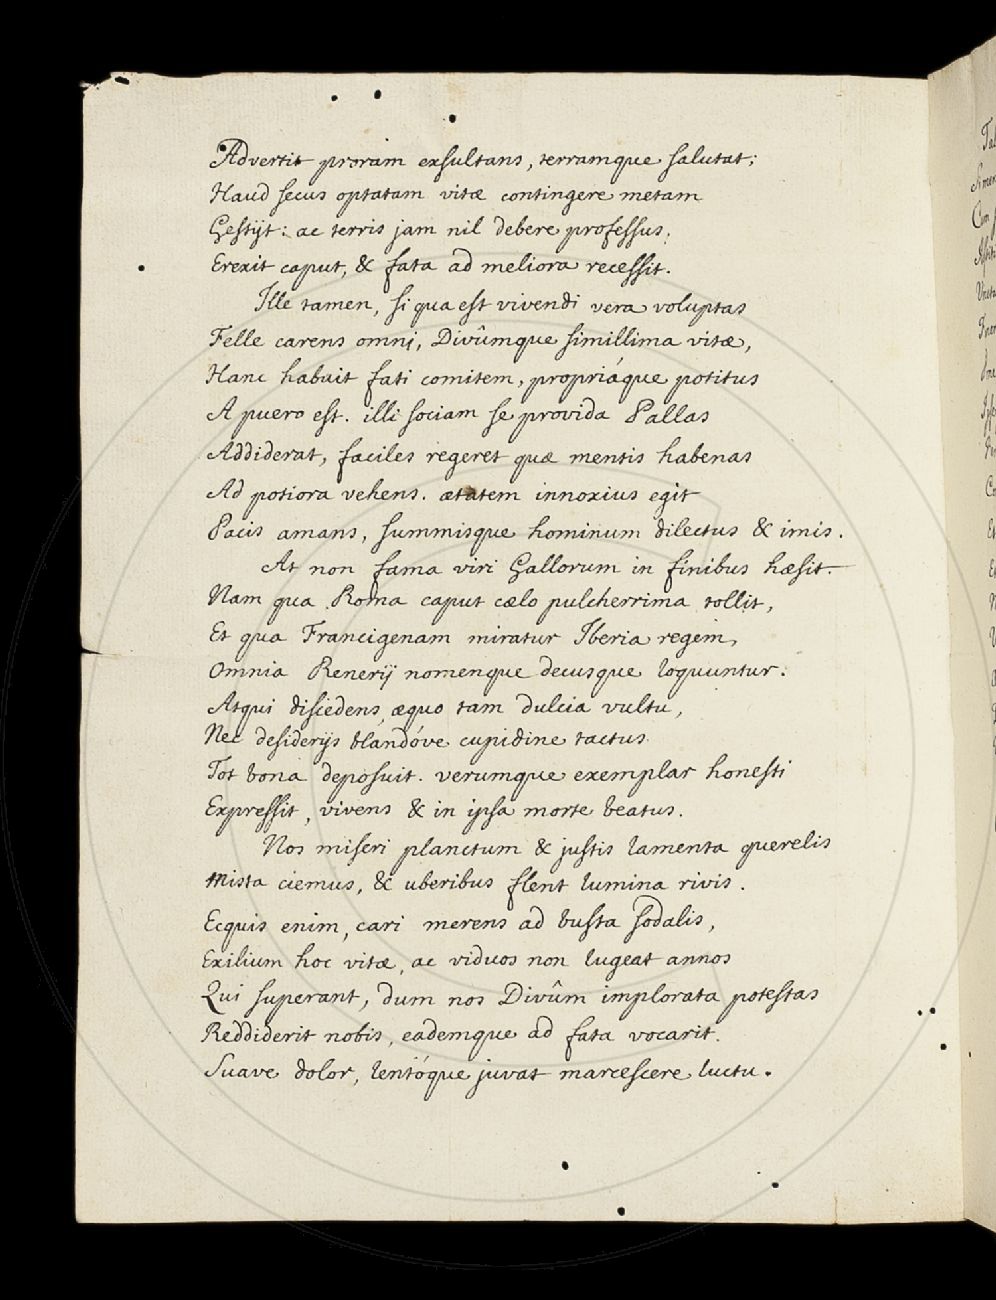 Advertit proram exsultans, terramque salutat;
Haud secus optatam vitæ contingere metam
Gestijt: ac terris jam nil debere professus,
Erexit caput, & fata ad meliora recessit.
Ille tamen, si qua est vivendi vera voluptas
Felle carens omni, Divûmque simillima vitæ,
Hanc habuit fati comitem, propriáque potitus
A puero est. illi sociam se provida Pallas
Addiderat, faciles regeret quæ mentis habenas
Ad potiora vehens. ætatem innoxius egit
Pacis amans, summisque hominum dilectus & imis.
At non fama viri Gallorum in finibus hæsit.
Nam qua Roma caput cælo pulcherrima tollit,
Et qua Francigenam miratur Iberia regem,
Omnia Renerij nomenque decusque loquuntur.
Atqui discedens, æquo tam dulcia vultu,
Nec desiderijs blandóve cupidine tactus
Tot bona deposuit. verumque exemplar honesti
Expressit, vivens & in ipsa morte beatus.
Nos miseri planctum & justis lamenta querelis
Mista ciemus, & uberibus flent lumina rivis.
Ecquis enim, cari merens ad busta sodalis,
Exilium hoc vitæ, ac viduos non lugeat annos
Qui superant, dum nos Divûm implorata potestas
Reddiderit nobis, eademque ad fata vocarit.
Suave dolor, lentóque juvat marcescere luctu.